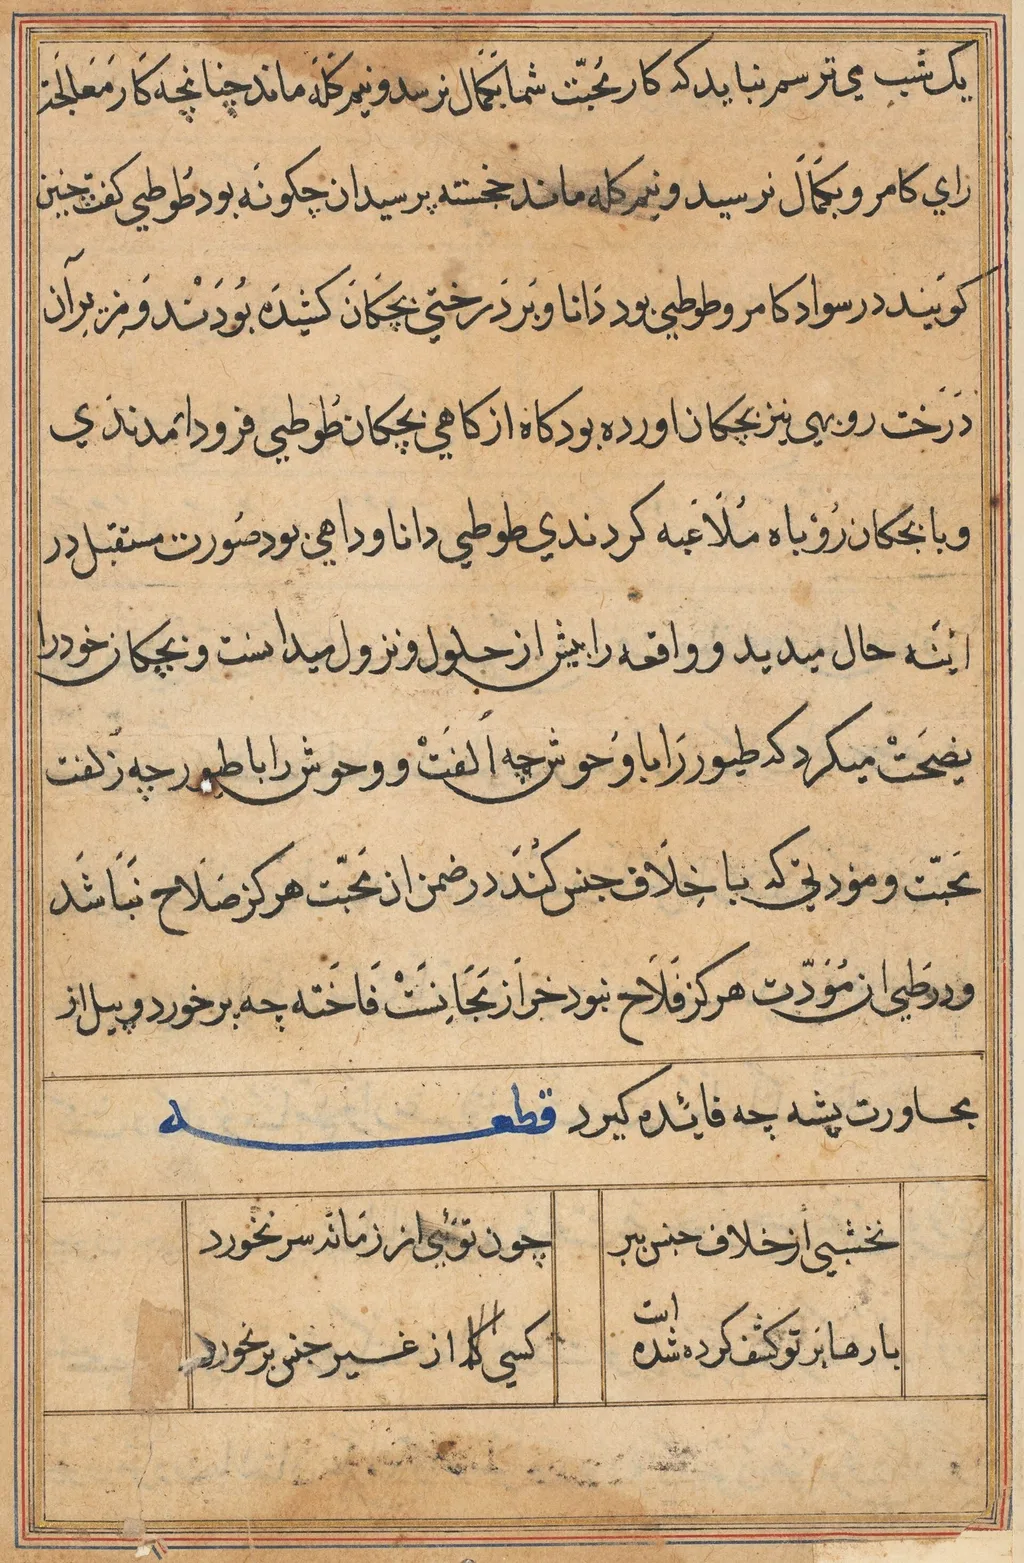 یک شب می ترسم نباید که کار مُحبّت شما بکَمال نرسد و نیم کَله ماند چنانچه کار مَعَالجَت
رای کامرو بکمَال نرسید و نیم کله ماند خجسته پرسید ان چکونه بود طُوطیي کفت چنین
کوَیند در سواد کامرو طوطیي بود دَانا و بَر دَرختي بچکَانَ کشیدَه بُودَنْد وَ در زیر آن
دَرَخت روبهي نیز بچکان اورده بود کاه از کاهي بچکان طُوطیي فرود امدندَي
و با بچکان رُوْباه مُلَاعَبه کردندي طوطیي دانا و داهي بود صُورت مستقبل در
اینَه حال میدید و واقعه را پیش از حلول و نزول میدانست و بچکان خود را
نصیحَتْ میکرد که طیور رَا با وَحوش چه اُلفَتْ و وحوش را با طیور چه زُلفت
مَحَبّت و مؤدتي که با خِلَاف جنس کُنَدَ در ضمن ان مَحبّت هرکز صَلَاح نبَاشَد
و در طَيِ ان مُوَدّت هرکز فَلَاح نبود خر از مَجَانِسَتْ فَاخَته چه بر خورد و پیل از
مجاورت پشه چه فائده کیرد قطعه
نخشبي از خلاف جنس ببر چون توئي از زمَانه سر نخورد
بارها بر تو کشف کرده شده است کسي کل از غیر جنس بر نخورد